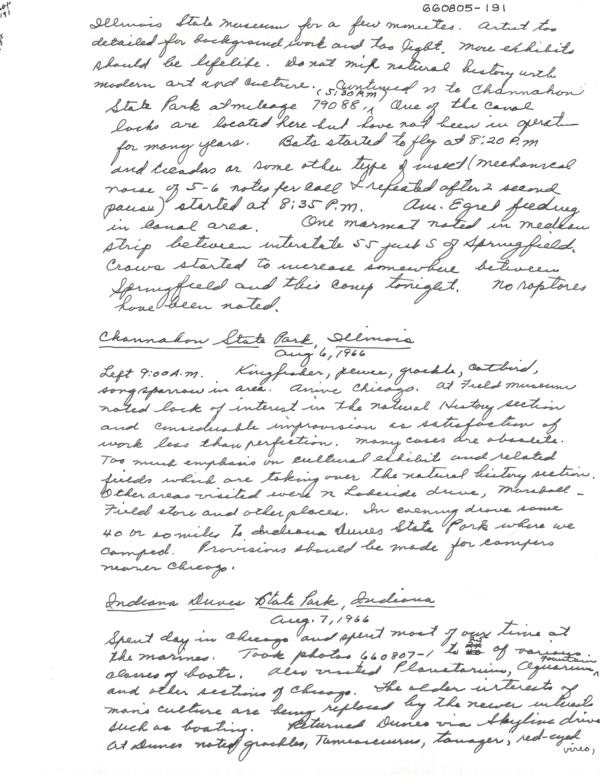 660805-191
Illinois State Museum for a few minutes. Artist too
detailed for background work and too light. More exhibits
should be lifelike. Do not mix natural history with
modern art and culture. Continued N to Channahon
State Park at mileage 79088. (5:30 P.M.) One of the canal
locks are located here but have not been in operation
for many years. Bats started to fly at 8:20 P.M
and cicadas or some other type of insect (mechanical
noise of 5-6 notes per call & repeated after 2 second
pause) started at 8:35 P.M. Am. Egret feeding
in canal area. One marmot noted in median
strip between interstate 55 just S of Springfield.
Crows started to increase somewhere between
Springfield and this camp tonight. No raptores
have been noted.
Channahon State Park, Illinois
Aug 6, 1966
Left 9:00 A.M. Kingfisher, pewee, grackle, catbird,
song sparrow in area. Arrive Chicago. At Field Museum
noted lack of interest in the Natural History section
and considerable improvision as satisfaction of
work less than perfection. Many cases are obsolete.
Too much emphasis on cultural exhibit and related
fields which are taking over the natural history section.
Other areas visited were N Lakeside drive, Marshall-
Field store and other places. In evening drove some
40 or 50 miles to Indiana Dunes State Park where we
camped. Provisions should be made for campers
nearer Chicago.
Indiana Dunes State Park, Indiana
Aug. 7, 1966
Spent day in Chicago and spent most of our time at
the marinas. Took photos 660807-1 to of various
classes of boats. Also visited Planetarium, Aquarium, Fountain
and other sections of Chicago. The older interests of
man's culture are being replaced by the newer interests
such as boating. Returned Dunes via Skyline drive
At Dunes noted grackles, Tamiasciurus, tanager, red-eyed
vireo,